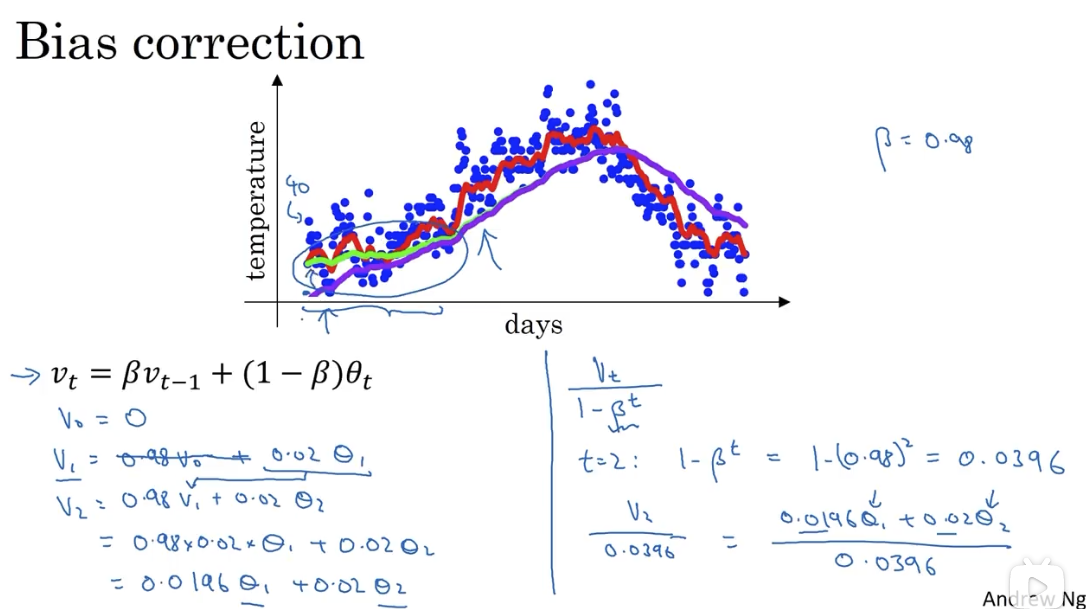 Bias correction
temperature
40
days
β = 0.98
→ vₜ = βvₜ₋₁ + (1 − β)θₜ
V₀ = 0
V₁ = 0.98V₀ + 0.02 θ₁
V₂ = 0.98 V₁ + 0.02 θ₂
= 0.98 × 0.02 × θ₁ + 0.02 θ₂
= 0.0196 θ₁ + 0.02 θ₂
Vₜ
1 - βᵗ
t=2: 1 - βᵗ = 1-(0.98)² = 0.0396
V₂
0.0396
=
0.0196θ₁ + 0.02θ₂
0.0396
Andrew Ng